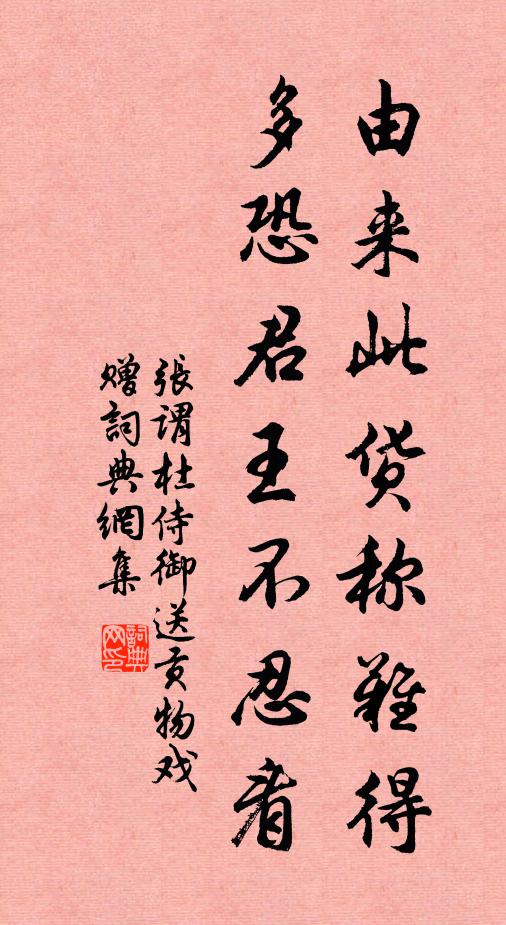 由来此货称难得
多恐君王不忍看
張谓杜侍御送贡物戏
赠詞典網集
詞典网印